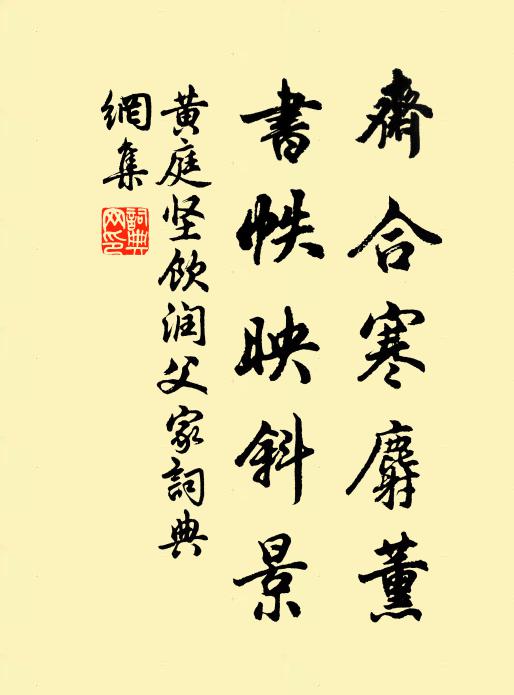 齋合寒麝薰
書帙映斜景
黄庭坚飲润父家詞典
網集
詞典網印